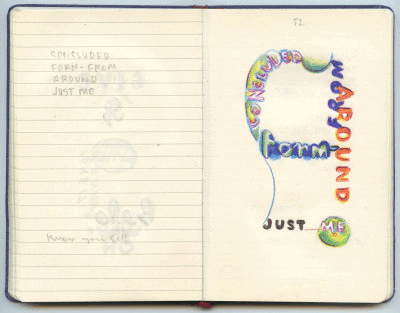 CONCLUDED
FORM-FROM
AROUND
JUST ME
Know your self
CONCLUDED
AROUND
form-
JUST ME